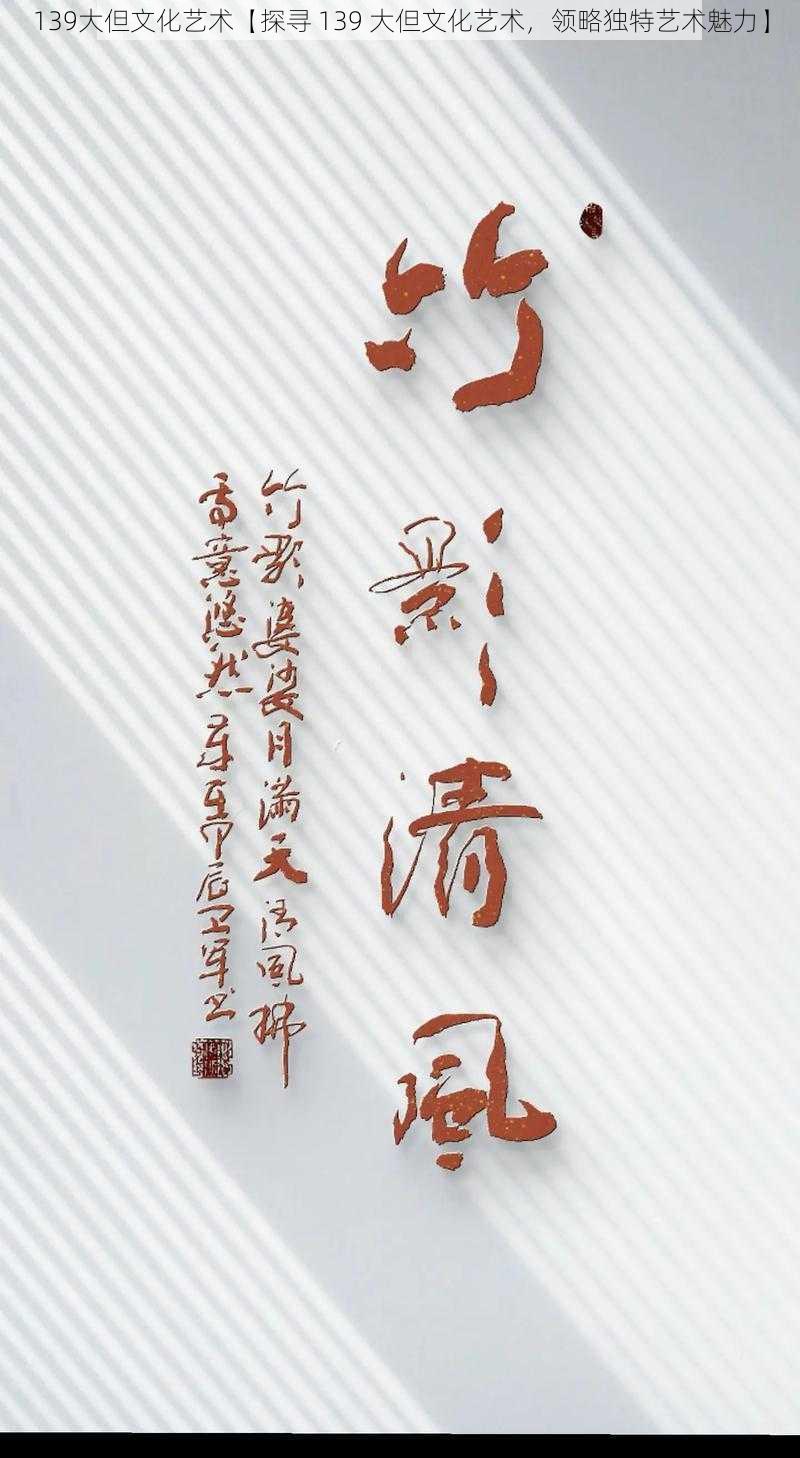 139大但文化艺术【探寻 139 大但文化艺术，领略独特艺术魅力】
竹影清风
竹影婆娑月满天清风拂
意悠然 甲辰卫军书